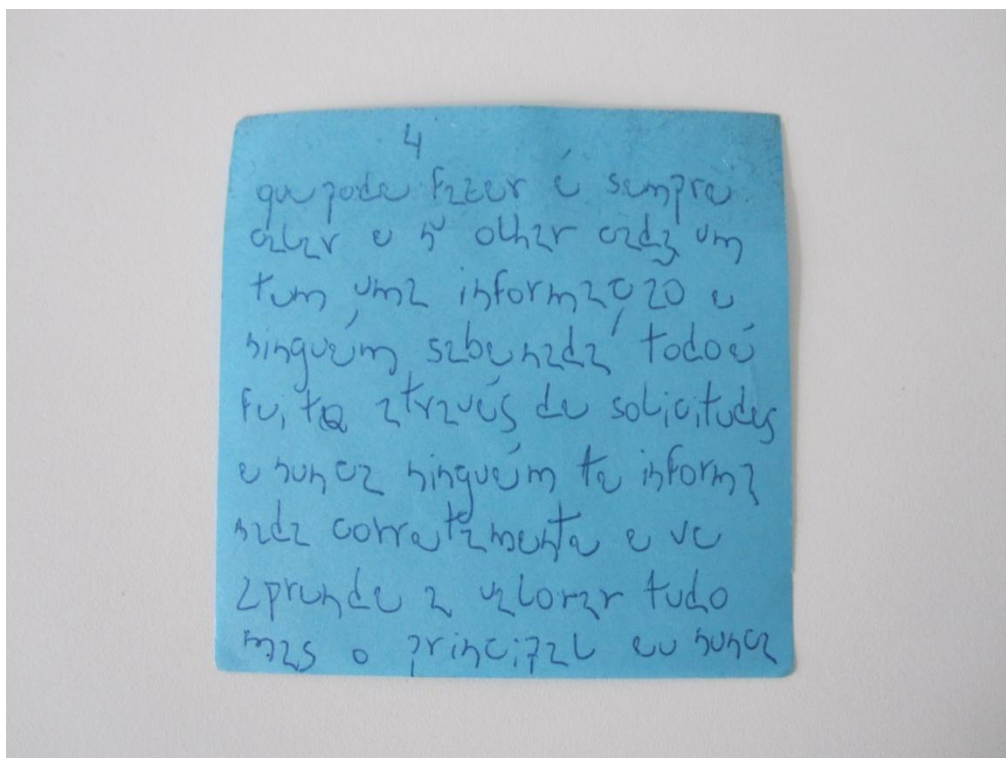 4
que pode fazer é sempre
calar e ñ olhar cada um
tem uma informação e
ninguém sabe nada todo é
feito através de solicitudes
e nunca ninguém te informa
nada corretamente e vc
aprende a valorar tudo
mas o principal eu nunca